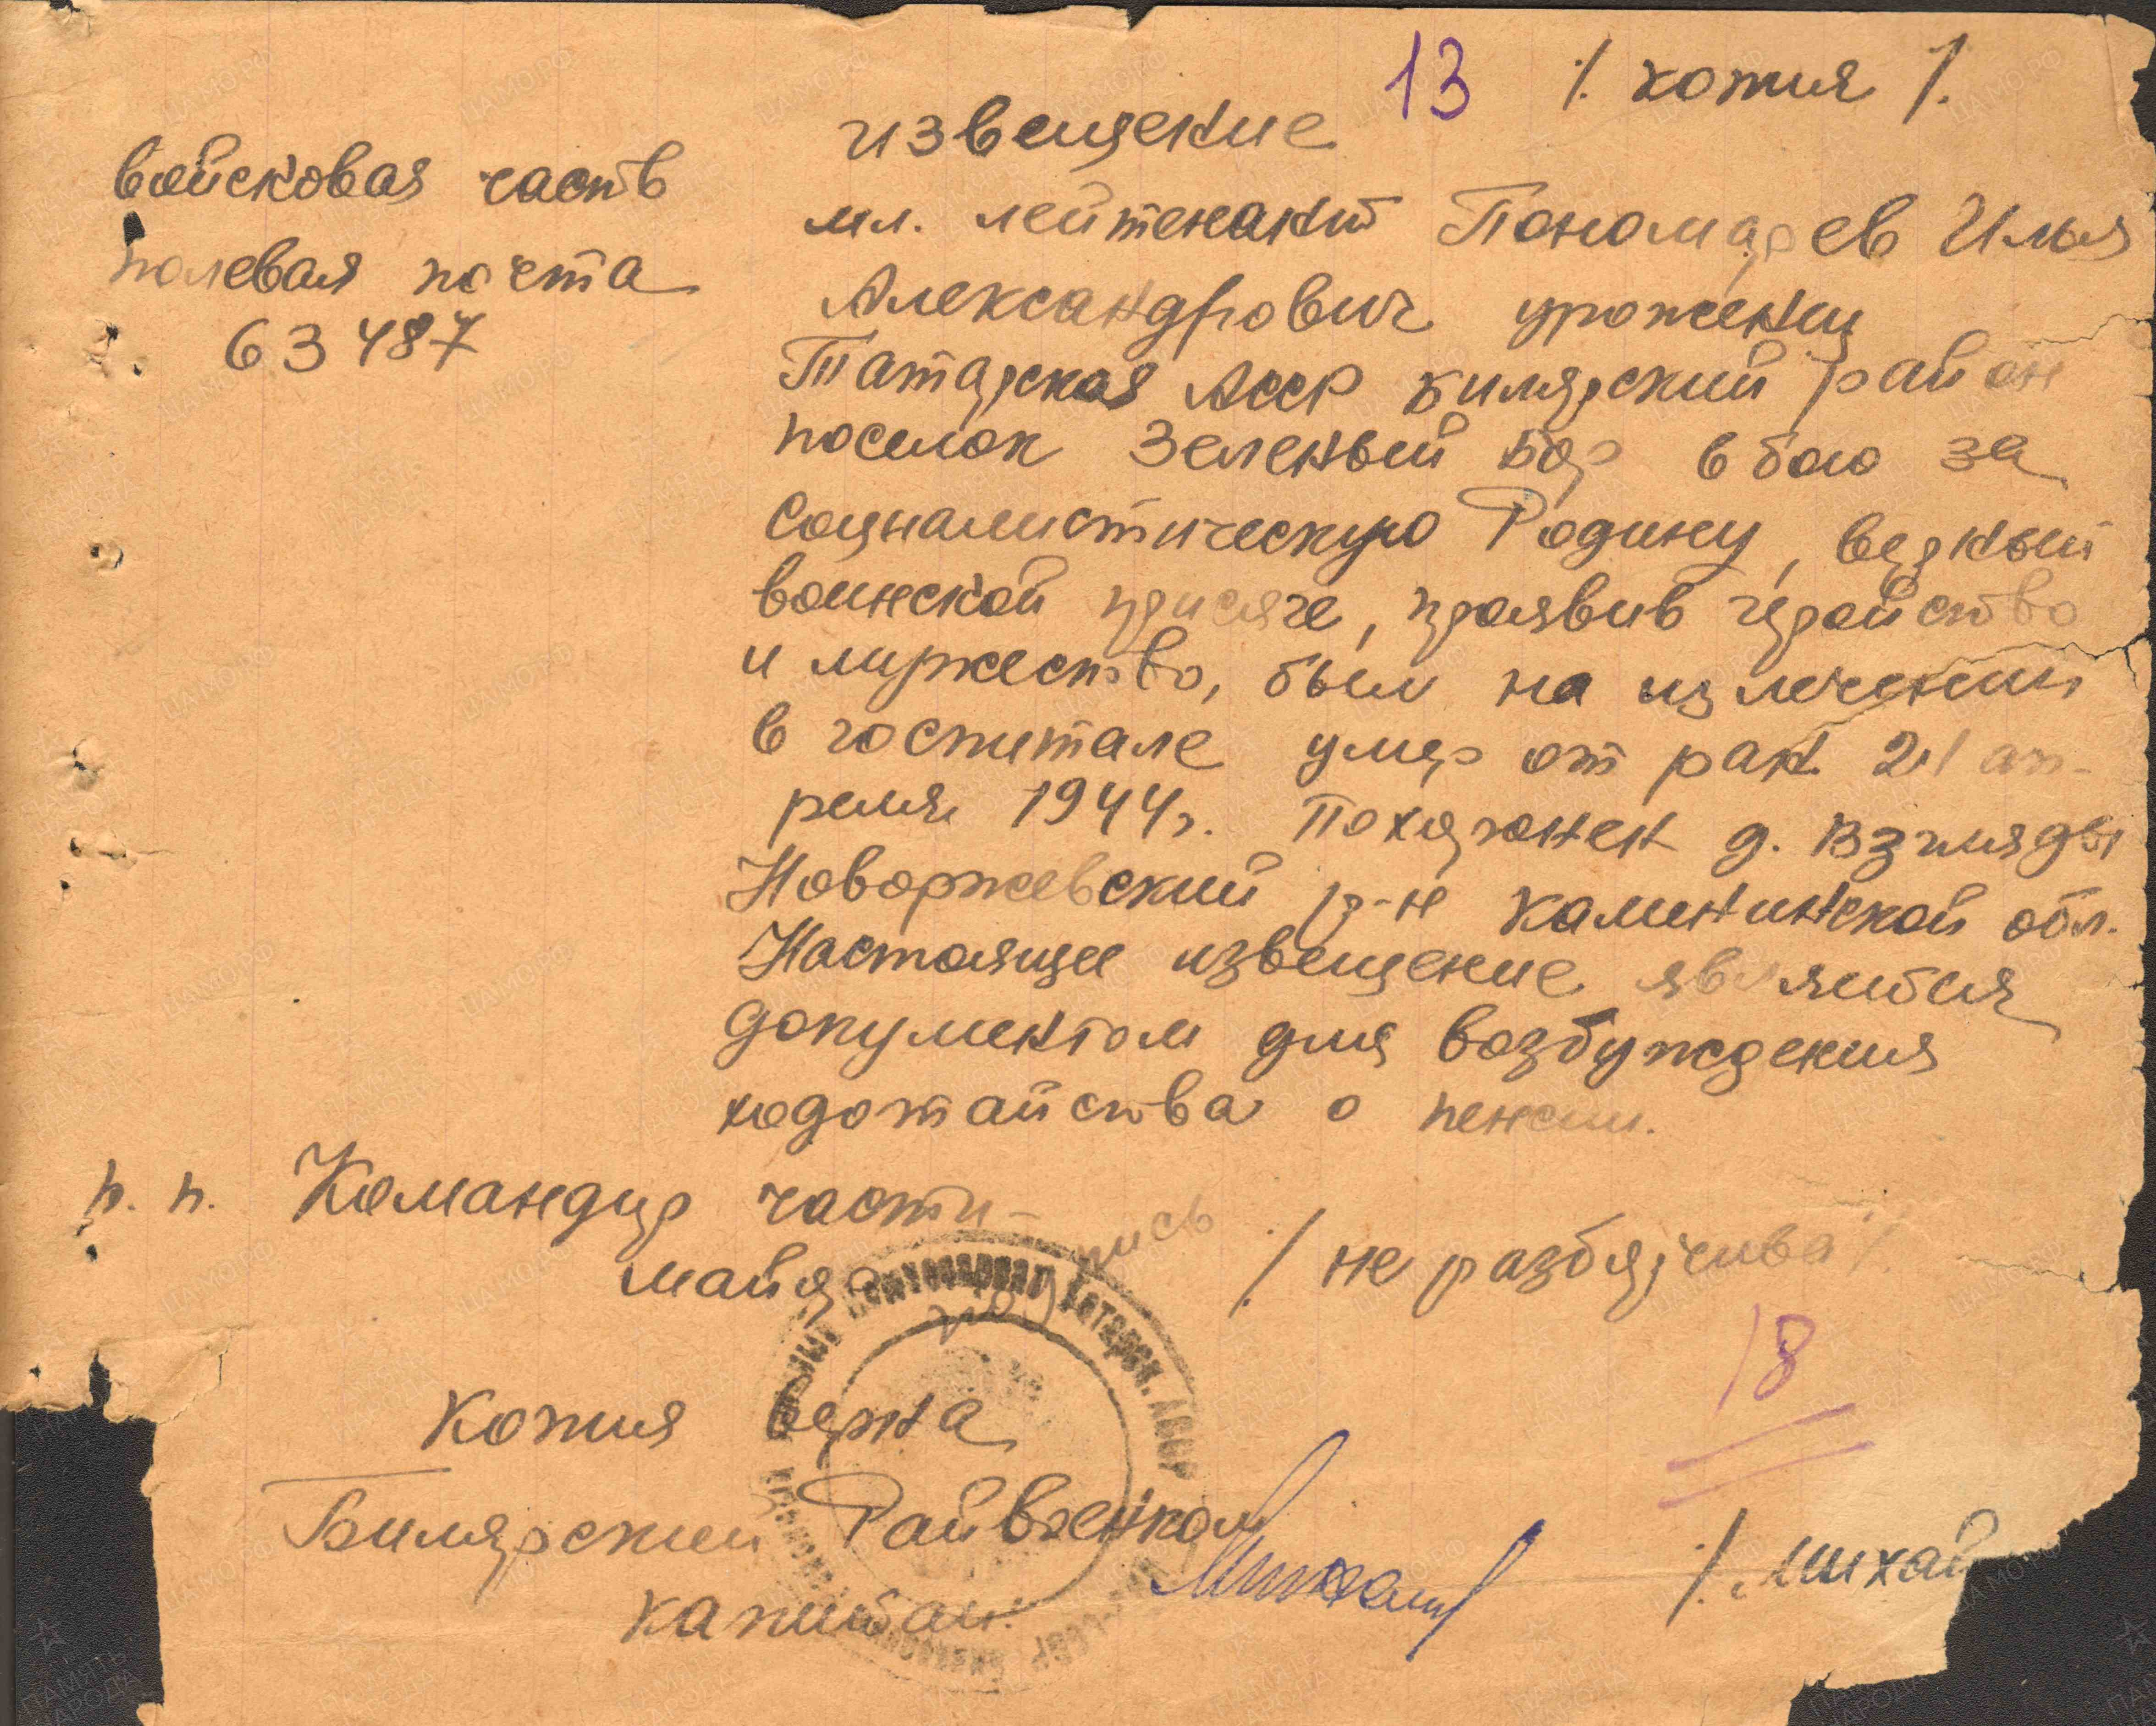 13 /. копия /.
извещение
войсковая часть
полевая почта
63487
мл. лейтенант Пономарев Илья
Александрович уроженец
Татарская АССР Билярский район
поселок Зеленый Бор в бою за
социалистическую Родину, верный
воинской присяге, проявив геройство
и мужество, был на излечении
в госпитале умер от ран 21 ап-
реля 1944г. Похоронен д. Взгляды
Новоржевский р-н Калининской обл.
Настоящее извещение является
документом для возбуждения
ходотайства о пенсии.
п. п. Командир части -
майор подпись /. не разборчива /.
18
копия верна
Билярский Райвоенком
капитан: /. Михай